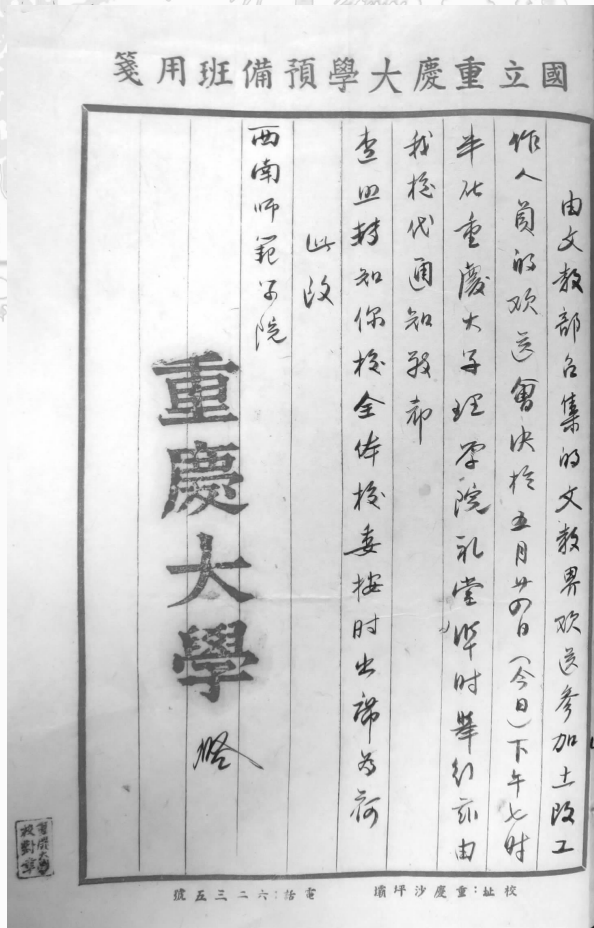 國立重慶大學預備班用箋
由文教部召集的文教界欢送參加土改工
作人員的欢送會决於五月廿四日(今日)下午七时
半在重慶大学理学院礼堂準时舉行茲由
我校代通知敬希
查照轉知你校全体校委按时出席為荷
此致
西南师範学院
重慶大學 啓
校址：重慶沙坪壩 電話：六二三五號
重慶大學
校對章